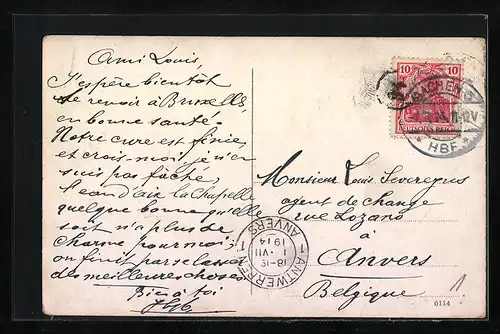 Ami Louis,
J'espère bientôt
te revoir à Bruxelles
en bonne santé.
Notre cure est finie,
et crois-moi, je n'en
suis pas fâché,
l'eau d'aix la Chapelle
quelque bonne qu'elle
soit n'a plus de
charme pour moi;
on finit par se lasser
des meilleures choses
Bien à toi
10 10
DEUTSCHES REICH
AACHEN
11-12V
* HBF *
Monsieur Louis
agent de change
rue Lozana
à
Anvers
Belgique
1 ANTWERPEN 1
18-19
1 VII
1914
ANVERS
6114